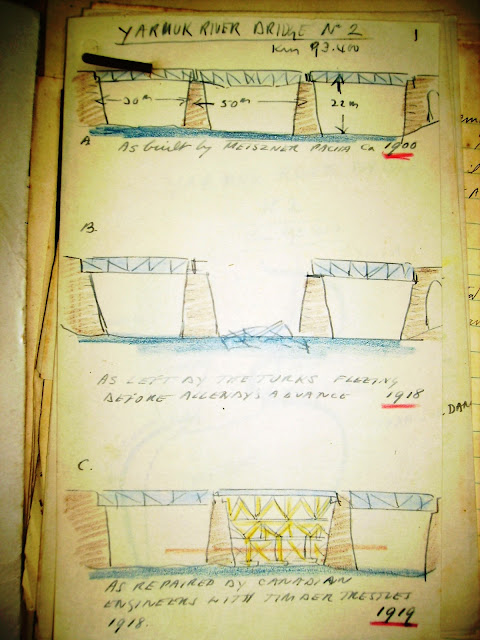 YARMUK RIVER BRIDGE Nº 2
1
Km 93.400
30 m
50 m
22 m
A. As built by MEISZNER PACHA Ca 1900
B.
AS LEFT BY THE TURKS FLEEING
BEFORE ALLENBY'S ADVANCE 1918
C.
AS REPAIRED BY CANADIAN
ENGINEERS WITH TIMBER TRESTLES
1918. 1919